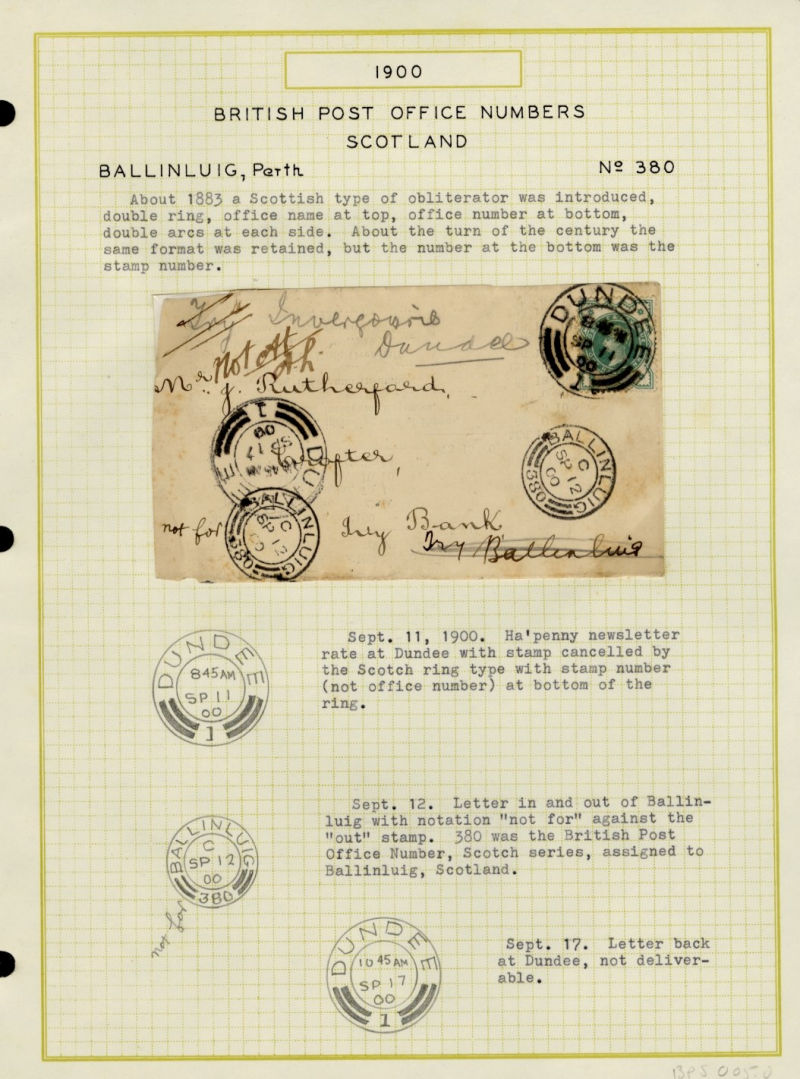 1900
BRITISH POST OFFICE NUMBERS
SCOTLAND
BALLINLUIG, Perth Nº 380
About 1883 a Scottish type of obliterator was introduced,
double ring, office name at top, office number at bottom,
double arcs at each side. About the turn of the century the
same format was retained, but the number at the bottom was the
stamp number.
Try Invergowrie
Dundee
Not At
Mr. J. Rutherford,
Crofter,
not for Ivy Bank
Try Ballinluig
DUNDEE
8 45 AM
SP 11
00
1
DUNDEE
SP 17
00
1
BALLINLUIG
C
SP 12
00
380
BALLINLUIG
C
SP 12
00
380
DUNDEE
845 AM
SP 11
00
1
Sept. 11, 1900. Ha'penny newsletter
rate at Dundee with stamp cancelled by
the Scotch ring type with stamp number
(not office number) at bottom of the
ring.
BALLINLUIG
C
SP 12
00
380
not for
Sept. 12. Letter in and out of Ballin-
luig with notation "not for" against the
"out" stamp. 380 was the British Post
Office Number, Scotch series, assigned to
Ballinluig, Scotland.
DUNDEE
10 45 AM
SP 17
00
1
Sept. 17. Letter back
at Dundee, not deliver-
able.